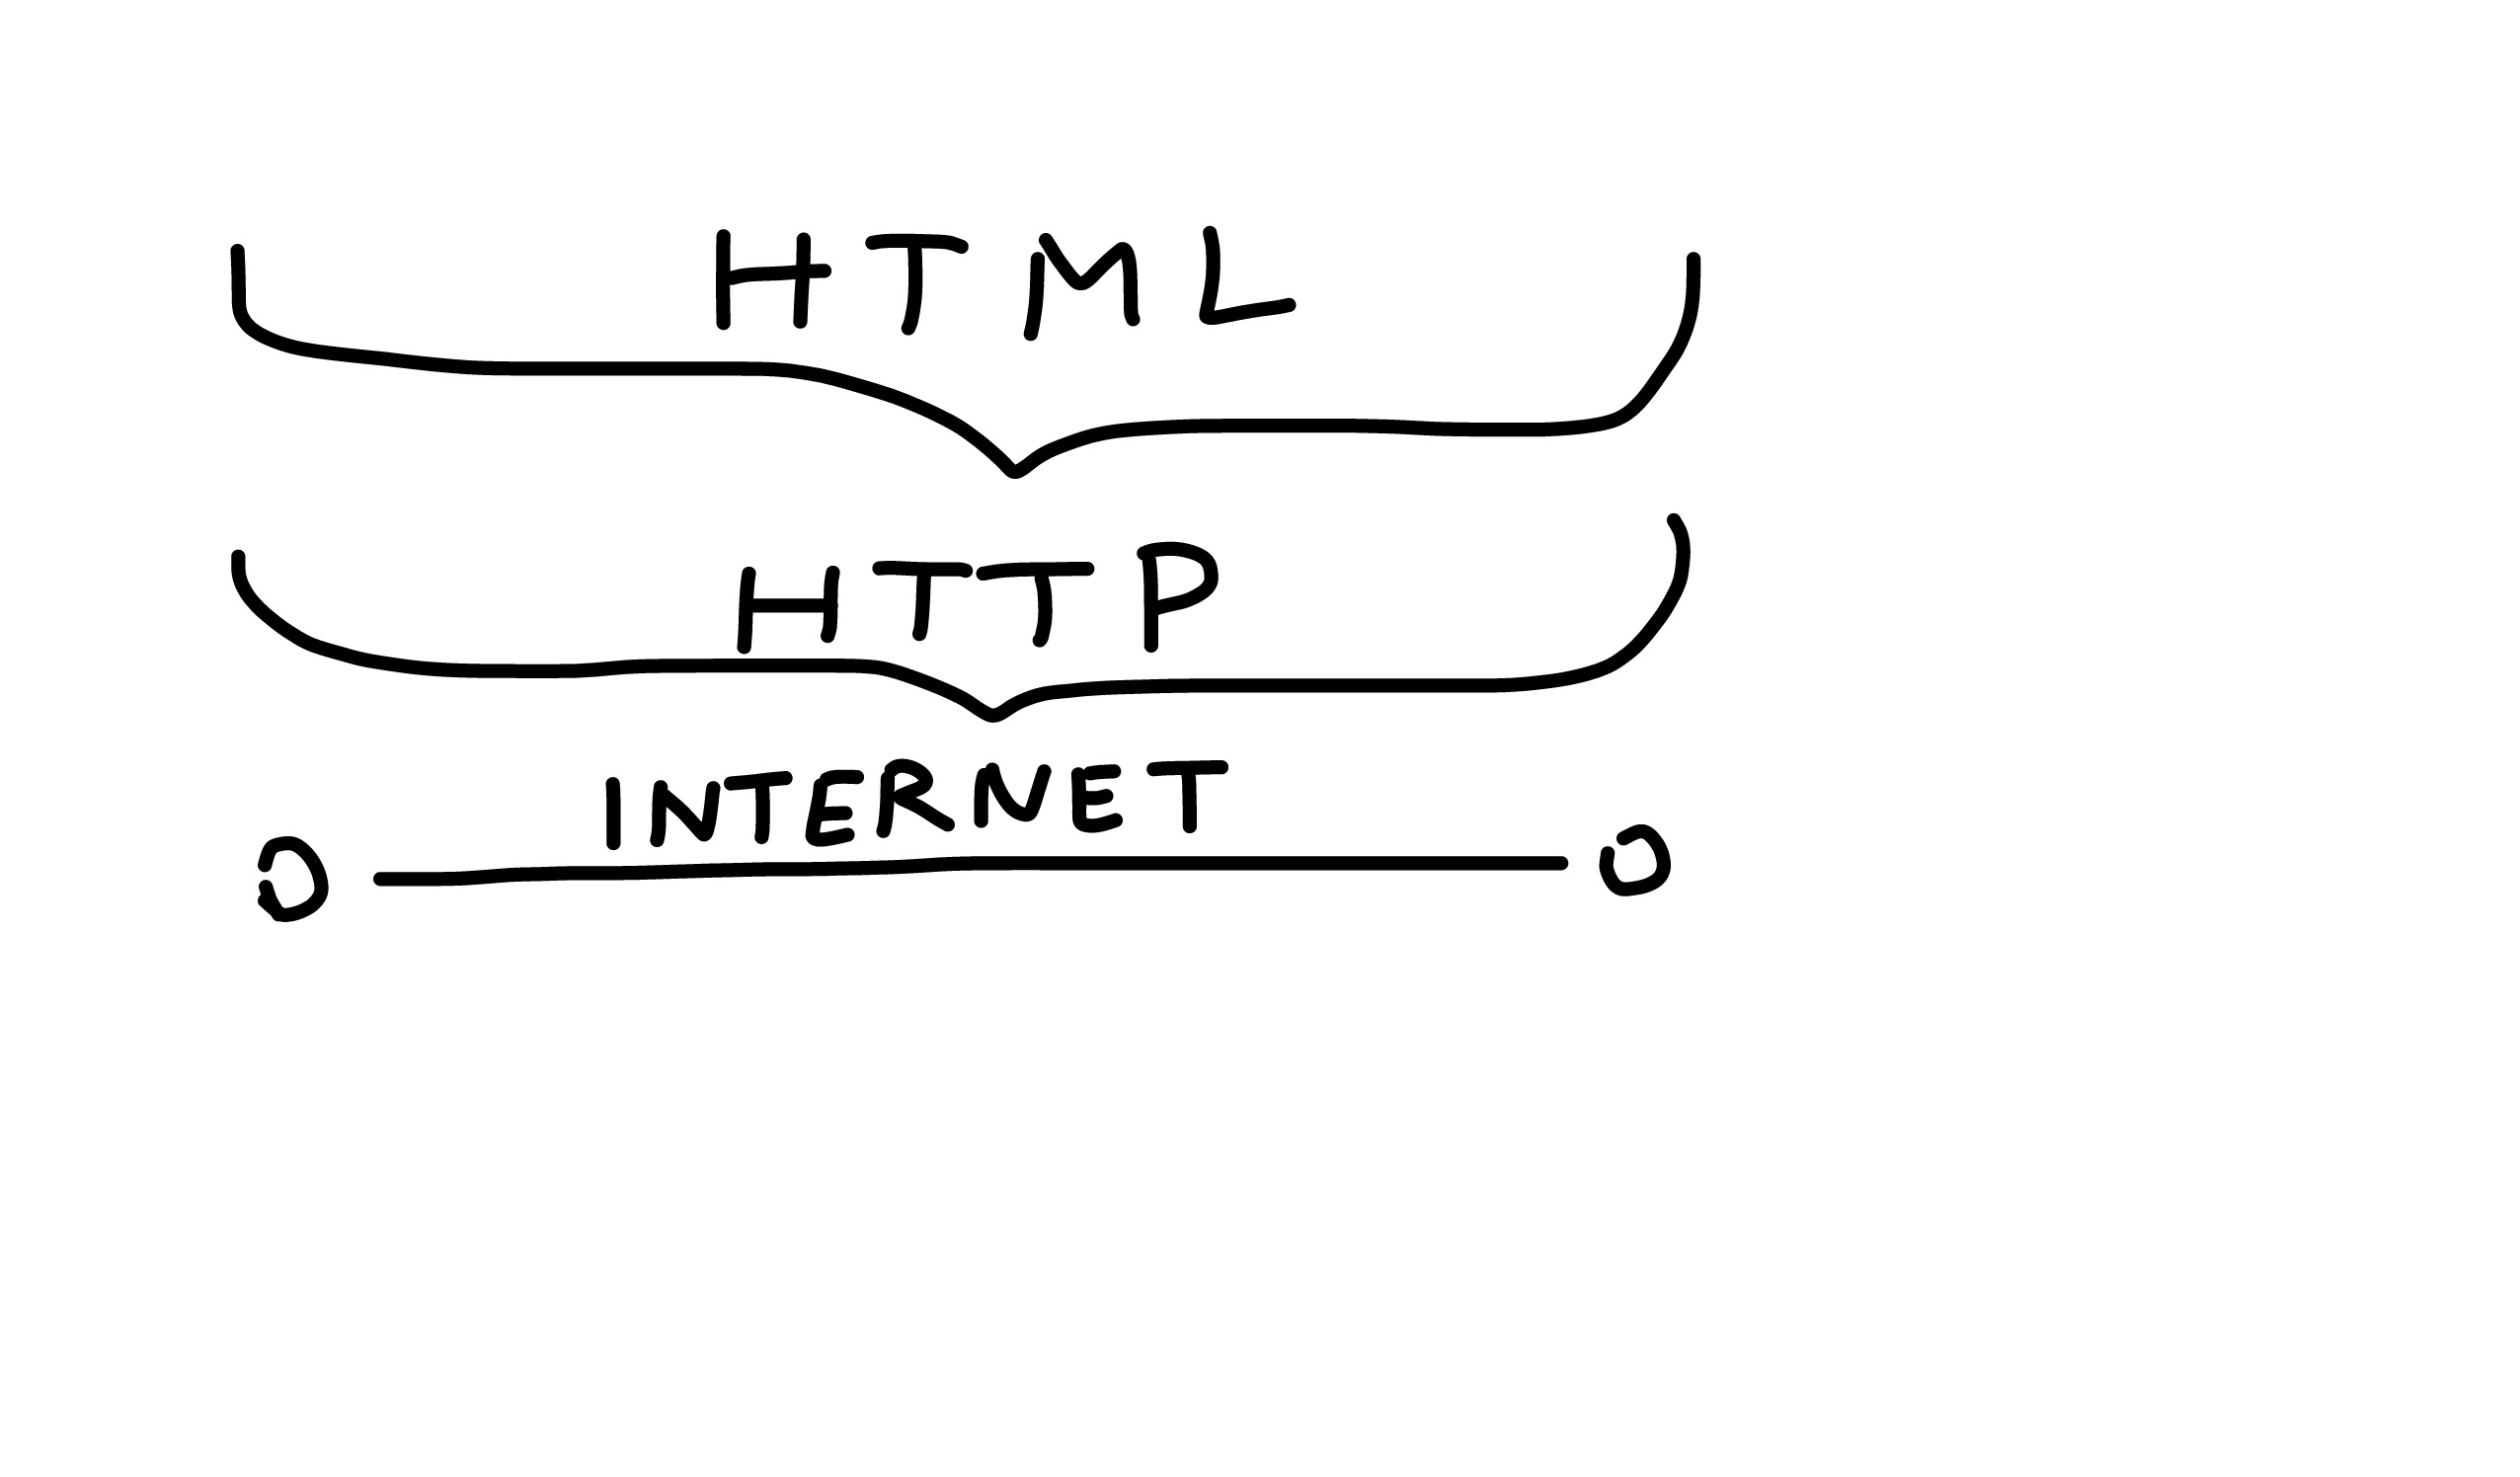 HTML
HTTP
INTERNET